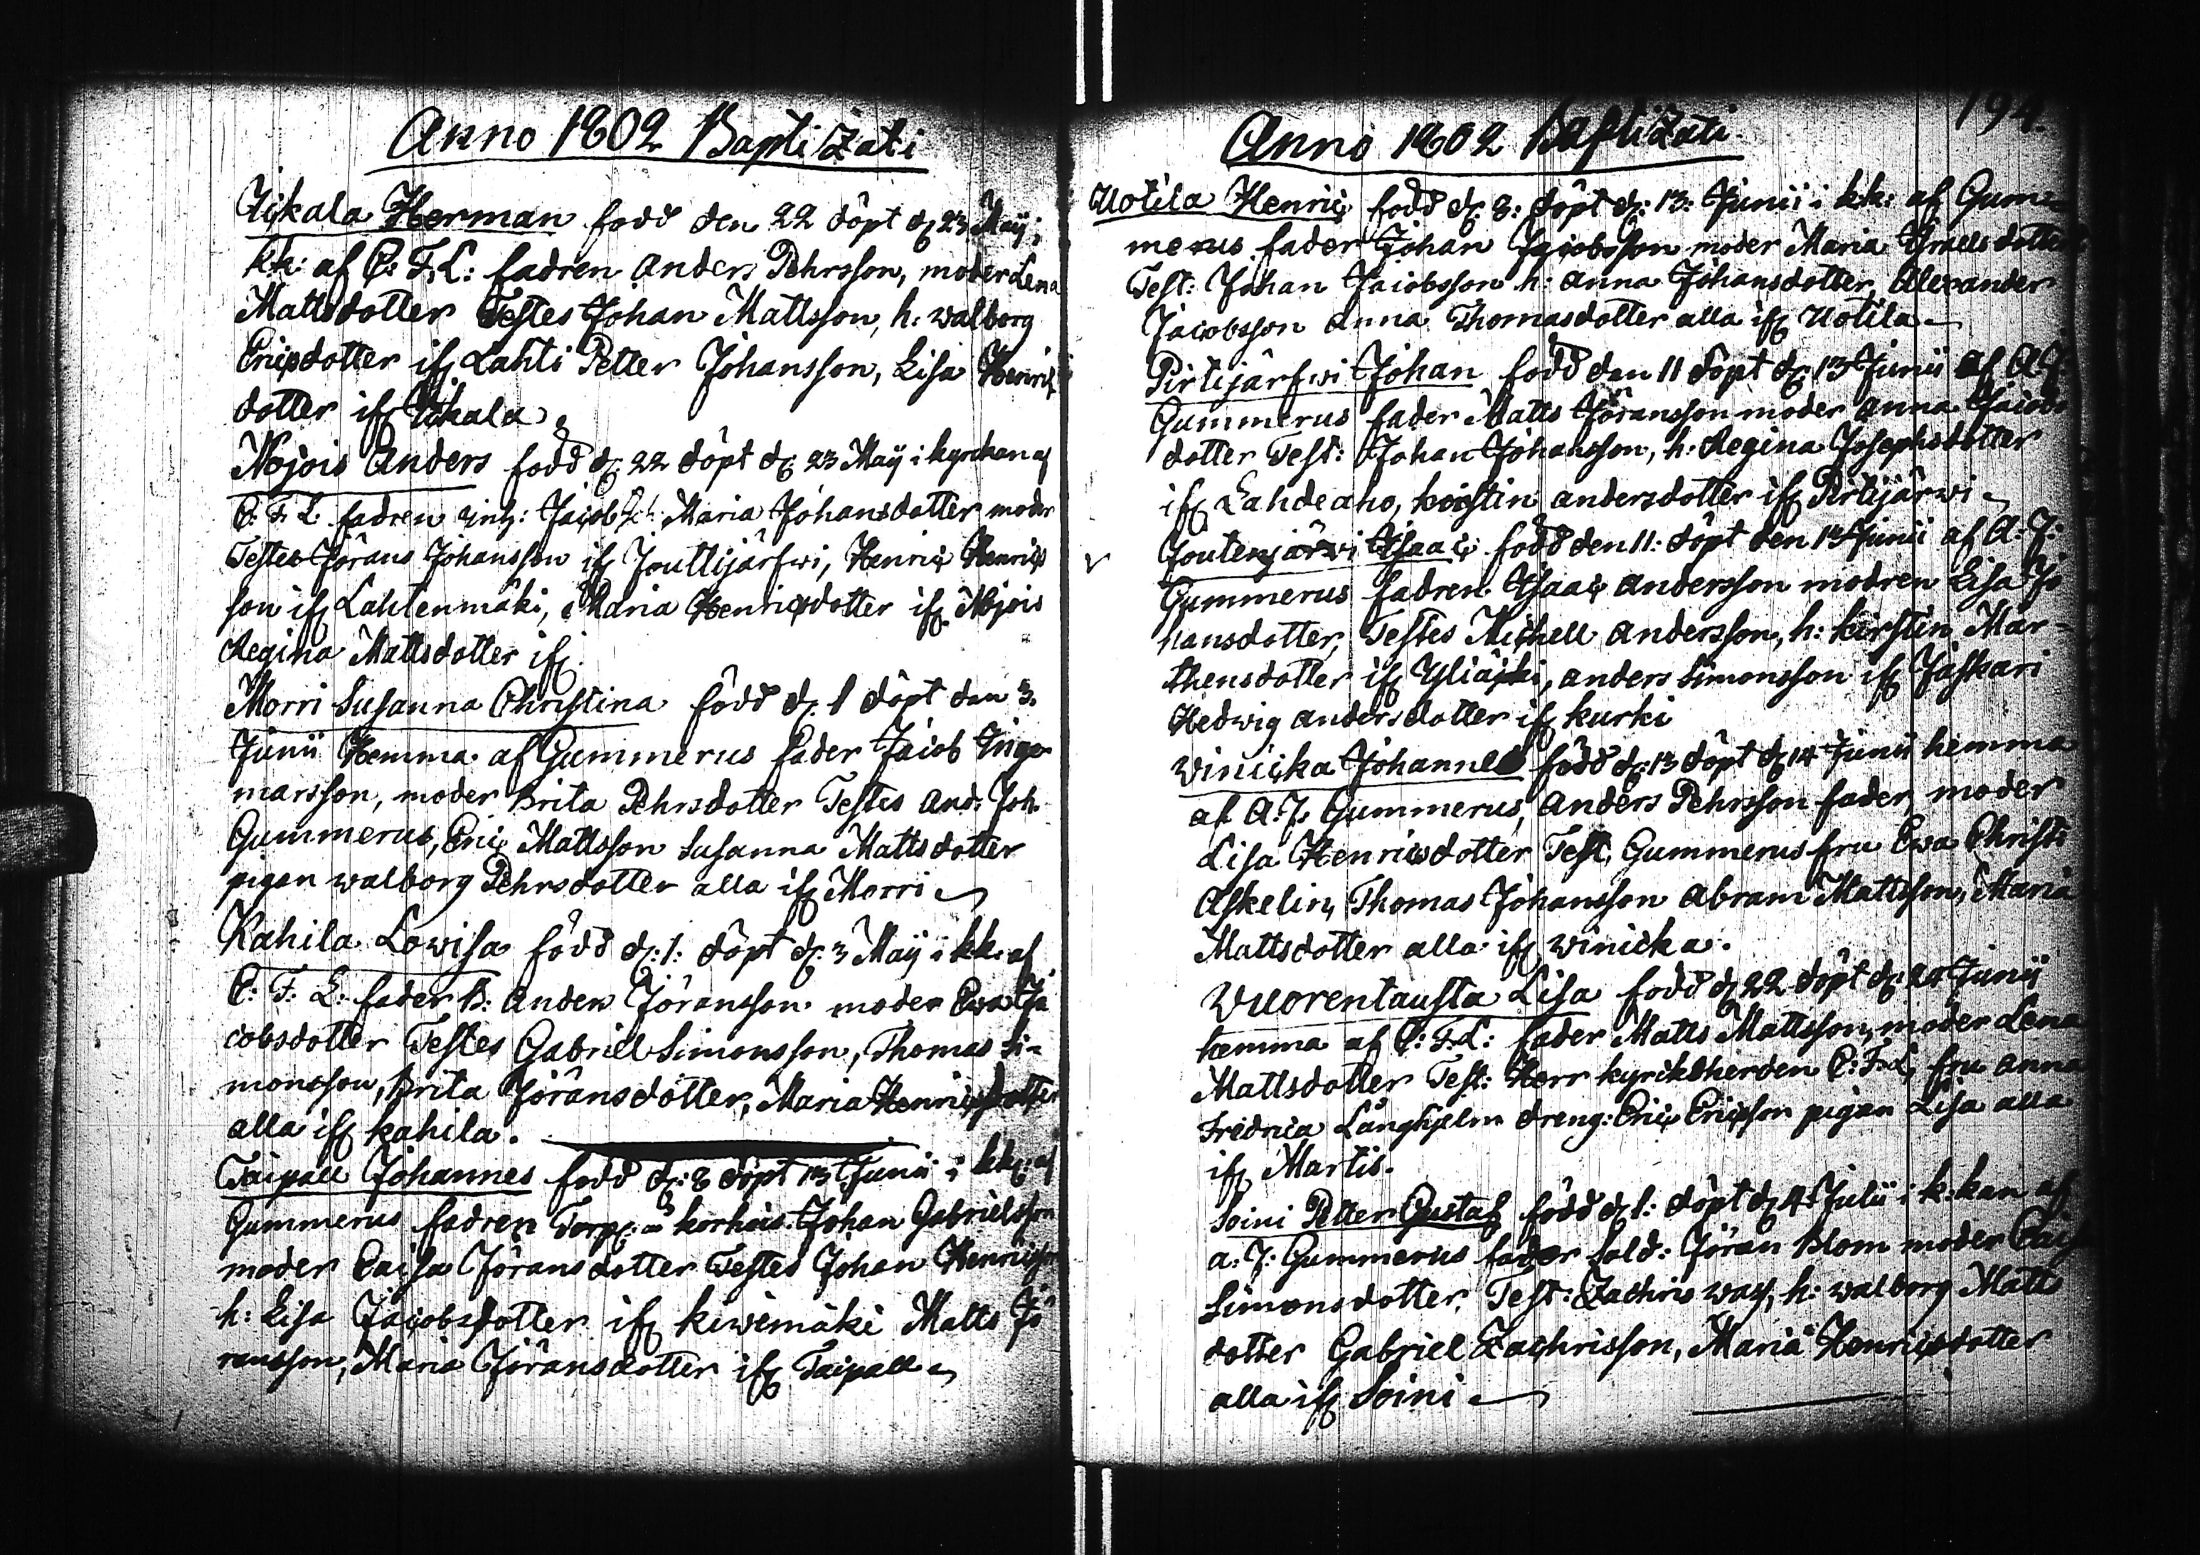 Anno 1802 Baptizati
Jickala Herman född den 22 döpt d: 23 Maij i
kk: af C: F. L: fadren Anders Pehrsson, moder Lena
Mattsdotter Testes Johan Mattsson, h: Walborg
Ericsdotter ifr Lahti Petter Johansson, Lisa Henrics
dotter ifr Jickala
Nojois Anders född d: 22 döpt d: 23 Maij i kyrckan af
C: F. L. fadren inh: Jacob Maria Johansdotter moder
Testes Jöran Johansson ifr Jouttijärfwi, Henric Henrics
son ifr Lahtenmäki, Maria Henricsdotter ifr Nojois
Regina Mattsdotter ifr.
Morri Susanna Christina född d: 1 döpt den 3.
Junii Hemma af Gummerus fader Jacob Inge
marsson, moder Brita Pehrsdotter Testes And: Joh.
Gummerus, Eric Mattsson Susanna Mattsdotter
pigan Walborg Pehrsdotter alla ifr Morri
Kahila Lowisa född d: 1: döpt d: 3 Maij i kk. af
C: F: L: fader B: Anders Jöransson moder Ewa Ja
cobsdotter Testes Gabriel Simonsson, Thomas Si-
monsson, Brita Jöransdotter, Maria Henricsdotter
alla ifr Kahila.
Taipall Johannes född d: 8 döpt 13 Junii i kk: af
Gummerus fadren Torp: Johan Gabrielsson
moder Caisa Jöransdotter Testes Johan Henricsson
h: Lisa Jacobsdotter ifr Kiwimäki Matts Jö
ransson, Maria Jöransdotter ifr Taipall
194.
Anno 1802 Baptizati
Uotila Henric född d: 8: döpt d: 13: Junii i kk: af Gum-
merus fader Johan Jacobsson moder Maria Israelsdotter
Test: Johan Jacobsson h: Anna Johansdotter, Alexander
Jacobsson Anna Thomasdotter alla ifr Uotila
Pirtijärfwi Johan född den 11 döpt d: 13 Junii af A J.
Gummerus fader Matts Jöransson moder Anna Jacobs
dotter Test: Johan Johansson, h: Regina Josephsdotter
ifr Lahdeaho, Kirstin Andersdotter ifr Pirtijärwi
Joutenjärwi Isaac född den 11: döpt den 13 Junii af A: J:
Gummerus fadren Isaac Andersson modren Lisa Jo
hansdotter, Testes Michell Andersson, h: Kirstin Mar-
thensdotter ifr Yliäjki, Anders Simonsson ifr Jaskari
Hedwig Andersdotter ifr Kurki
Winicka Johannes född d: 13 döpt d: 14 Junii hemma
af A. J. Gummerus, Anders Pehrsson fader, moder
Lisa Henricsdotter Test, Gummerus fru Ewa Christi
Askelin, Thomas Johansson Abram Mattsson, Maria
Mattsdotter alla ifr Winicka.
Wuorentausta Lisa född d: 22 döpt d: 24 Junii
hemma af C: F. L: fader Matts Mattsson, moder Lena
Mattsdotter Test: Herr kyrckoherden C: F. L, fru Anna
Fridrica Långhjelm dreng: Eric Ericsson pigan Lisa alla
ifr Martis.
Soini Petter Gustaf född d: 1: döpt d: 4 Julii i k:kan af
A. J: Gummerus fader Sold: Jöran Blom moder Caisa
Simonsdotter, Test: Zachris Wass, h: Walborg Matts
dotter Gabriel Zachrisson, Maria Henricsdotter
alla ifr Soini